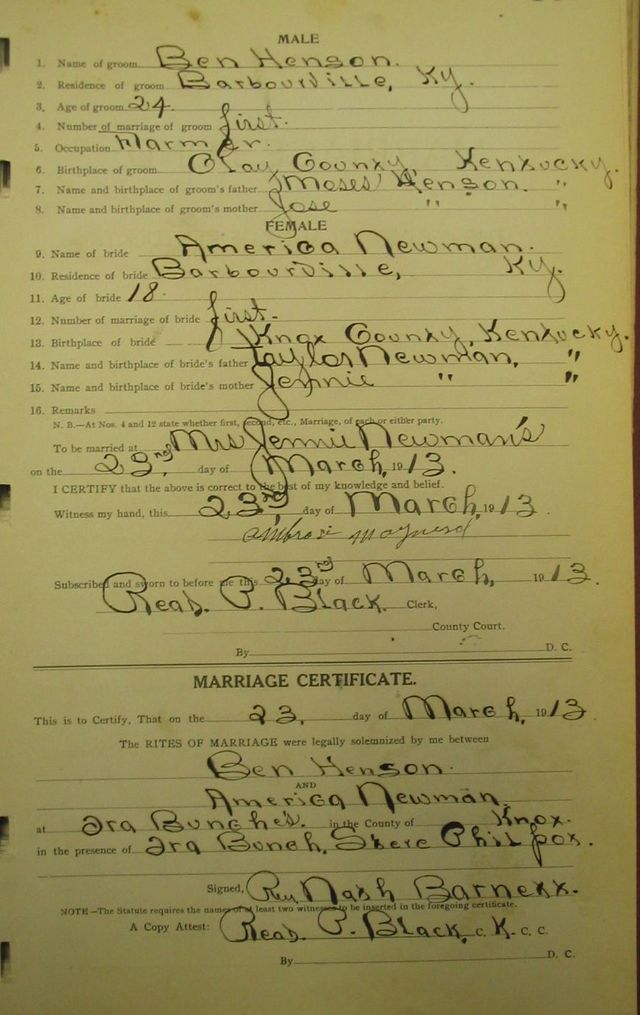 MALE
1. Name of groom Ben Henson.
2. Residence of groom Barbourville, Ky.
3. Age of groom 24.
4. Number of marriage of groom first.
5. Occupation
6. Birthplace of groom Clay County, Kentucky.
7. Name and birthplace of groom's father Moses Henson. "
8. Name and birthplace of groom's mother Jose " "
FEMALE
9. Name of bride America Newman.
10. Residence of bride Barbourville, Ky.
11. Age of bride 18.
12. Number of marriage of bride first.
13. Birthplace of bride Knox County, Kentucky.
14. Name and birthplace of bride's father Taylor Newman, "
15. Name and birthplace of bride's mother Jennie " "
16. Remarks
N. B.—At Nos. 4 and 12 state whether first, second, etc., Marriage, of each or either party.
To be married at Mrs Jennie Newman's
on the 23rd, day of March, 1913.
I CERTIFY that the above is correct to the best of my knowledge and belief.
Witness my hand, this 23rd day of March, 1913
Ambrose
Subscribed and sworn to before me this 23rd day of March, 1913.
Read. P. Black. Clerk,
County Court.
By D. C.
MARRIAGE CERTIFICATE.
This is to Certify, That on the 23, day of March, 1913.
The RITES OF MARRIAGE were legally solemnized by me between
Ben Henson.
AND
America Newman.
at Ira Bunch's. in the County of Knox.
in the presence of Ira Bunch, Philpox.
Signed, Rev Nash Barnett.
NOTE—The Statute requires the names of at least two witnesses to be inserted in the foregoing certificate.
A Copy Attest: Read. P. Black, C. K. C. C.
By D. C.